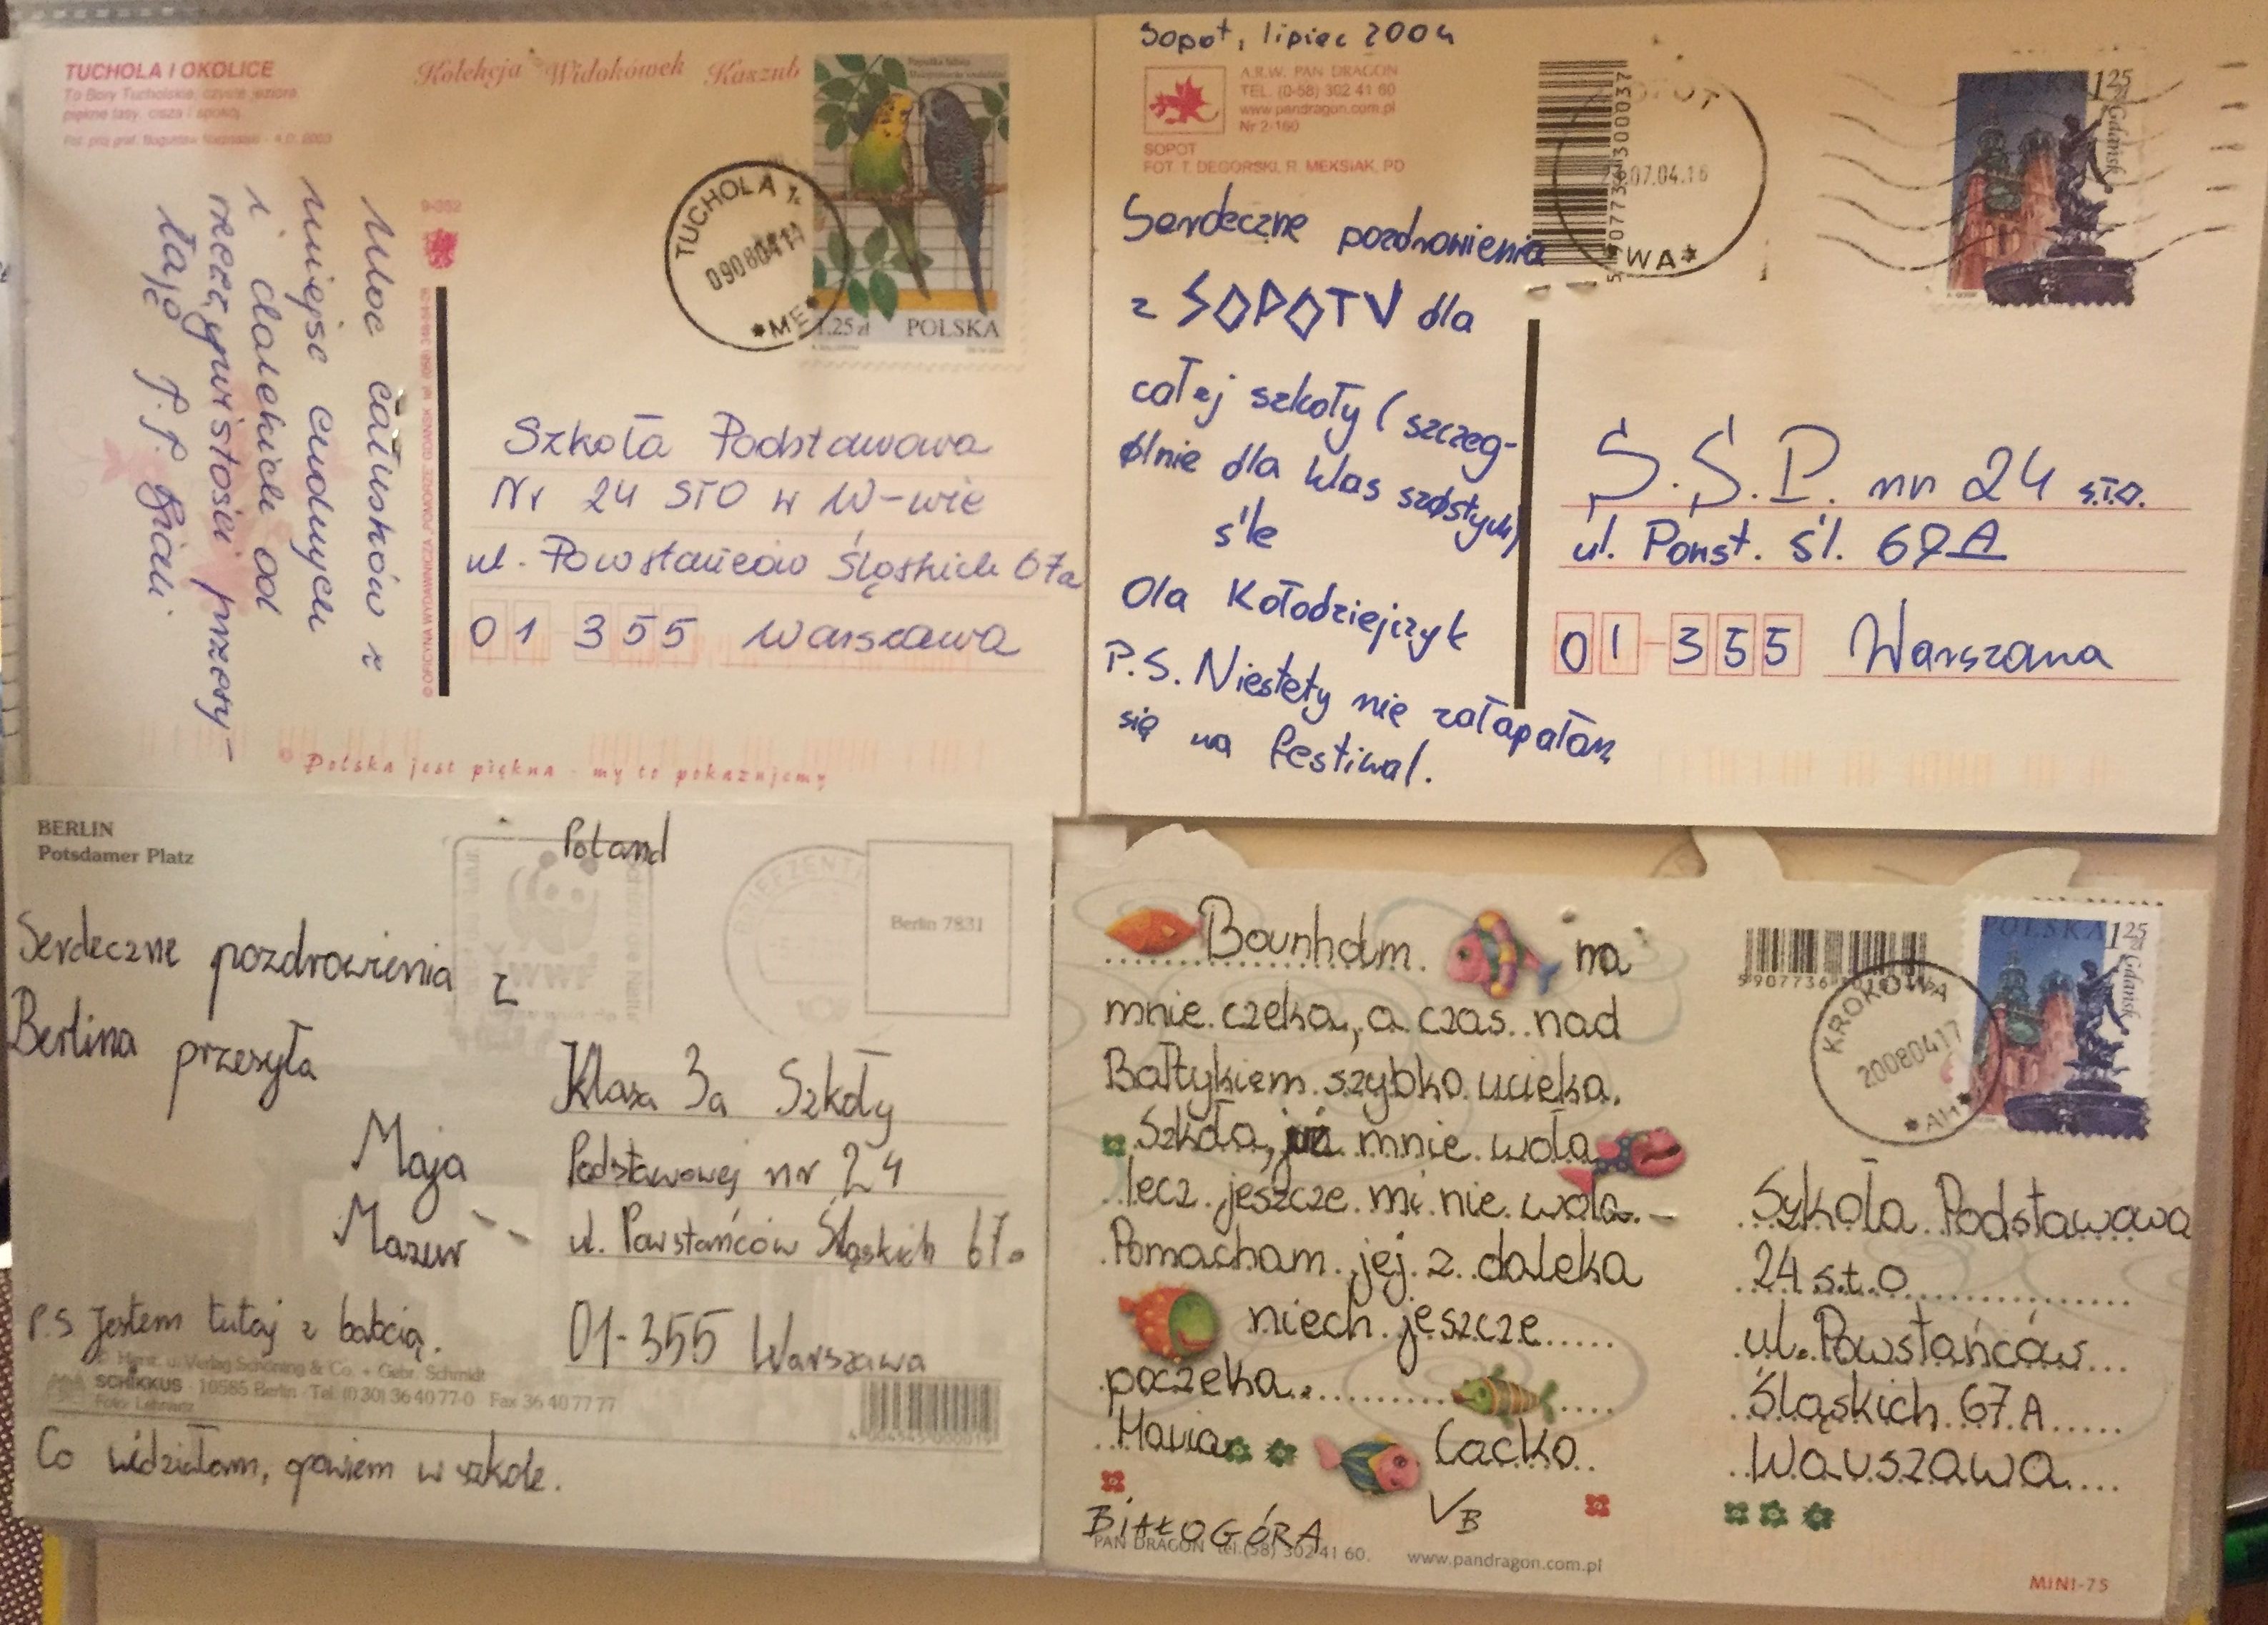 TUCHOLA I OKOLICE
To Bory Tucholskie, czyste jeziora
piękne lasy, cisza i spokój
Kolekcja Widokówek Kaszub
TUCHOLA 1
090804
*ME*
1.25 zł POLSKA
9-052
Moc całusków z
miejsc cudnych
i dalekich od
rzeczywistości przesy-
łają P.P.
© OFICYNA WYDAWNICZA POMORZE GDAŃSK
Szkoła Podstawowa
Nr 24 STO w W-wie
ul. Powstańców Śląskich 67a
01 355 Warszawa
© Polska jest piękna - my to pokazujemy
Sopot, lipiec 2004
A.R.W. PAN DRAGON
TEL. (0-58) 302 41 60
www.pandragon.com.pl
Nr 2-160
SOPOT
FOT. T. DEGÓRSKI, R. MEKSIAK, PD
5907736300037
07.04.16
*WA*
POLSKA 1 25 zł
Gdańsk
Serdeczne pozdrowienia
z SOPOTU dla
całej szkoły (szczeg-
ólnie dla klas szóstych)
śle
Ola Kołodziejczyk
P.S. Niestety nie załapałam
się na festiwal.
S.S.P. nr 24 s.t.o.
ul. Powst. Śl. 67A
01-355 Warszawa
BERLIN
Potsdamer Platz
Poland
WWF
BRIEFZENT
Berlin 7831
Serdeczne pozdrowienia z
Berlina przesyła
Maja
Mazur
P.S Jestem tutaj z babcią.
Klasa 3a Szkoły
Podstawowej nr 24
ul. Powstańców Śląskich 67a
01-355 Warszawa
u. Verlag Schöning & Co. + Gebr. Schmidt
SCHIKKUS · 10585 Berlin · Tel. (030) 36 40 77-0 Fax 36 40 77 77
Co widziałam, opowiem w szkole.
Bornholm na
mnie czeka, a czas nad
Bałtykiem szybko ucieka.
Szkoła, już mnie woła
lecz jeszcze mi nie wola.
Pomacham jej z daleka
niech jeszcze
poczeka.
Maria Cacko
VB
BIAŁOGÓRA
PAN DRAGON tel.(58) 302 41 60.
www.pandragon.com.pl
KROKOWA
20080417
POLSKA 1 25 zł
Gdańsk
Szkoła Podstawowa
24 s.t.o
ul. Powstańców
Śląskich 67 A
Warszawa
MINI-75